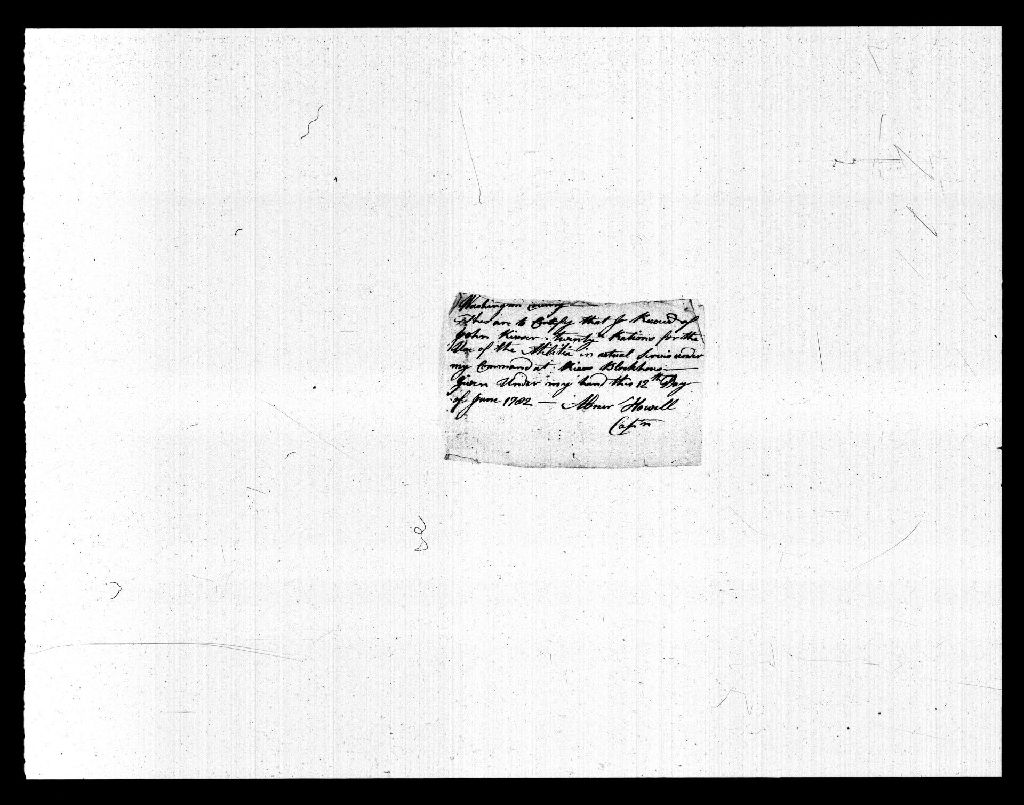 Washington County
These are to Certify that I Received of
John Kieser twenty Rations for the
Use of the Militia in actual Servis under
my Command at Blockhous
Given Under my hand this 12th Day
of June 1782 — Abner Howell
Captn